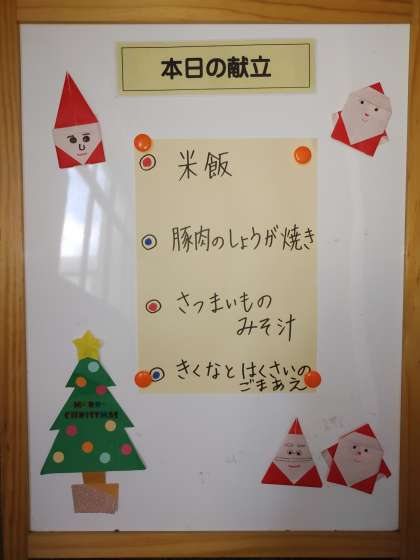 本日の献立
米飯
豚肉のしょうが焼き
さつまいもの
みそ汁
きくなとはくさいの
ごまあえ
MERRY
CHRISTMAS